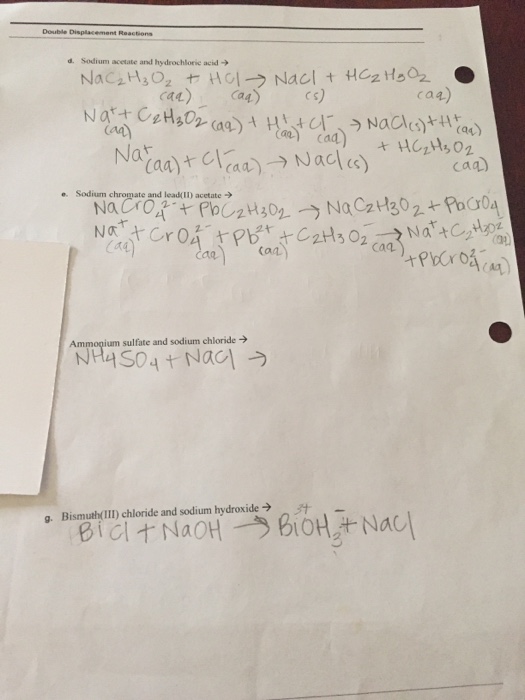 Double Displacement Reactions
d. Sodium acetate and hydrochloric acid →
NaC₂H₃O₂ + HCl → Nacl + HC₂H₃O₂
(aq) (aq) (s) (aq)
Na⁺ + C₂H₃O₂⁻(aq) + H⁺ + Cl⁻ → NaCl(s) + H⁺(aq)
(aq) (aq) (aq) + HC₂H₃O₂
Na⁺(aq) + Cl⁻(aq) → Nacl(s) (aq)
e. Sodium chromate and lead(II) acetate →
NaCrO₄²⁻ + PbC₂H₃O₂ → NaC₂H3O₂ + PbCrO₄
Na⁺ + CrO₄²⁻ + Pb²⁺ + C₂H₃O₂⁻(aq) → Na⁺ + C₂H₃O₂⁻(aq)
(aq) (aq) (aq) + PbCrO₄²⁻(aq)
Ammonium sulfate and sodium chloride →
NH4SO₄ + Nacl →
g. Bismuth(III) chloride and sodium hydroxide →
Bicl + NaOH → Bi³⁺OH₃⁻ + Nacl